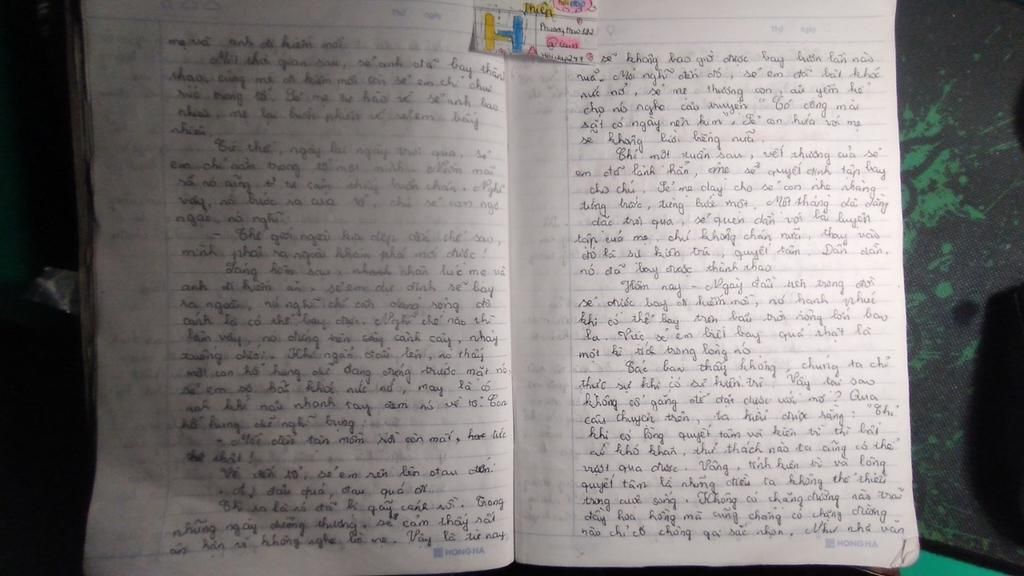 Thiện
H
mẹ và anh đi kiếm mồi
Một thời gian sau, sẻ anh đã bay thành
thạo, cùng mẹ đi kiếm mồi còn sẻ em chỉ
trong tổ. Sẻ mẹ tự hào về sẻ anh bao
nhiêu, mẹ lại buồn phiền về sẻ em bấy
nhiêu.
Cứ thế, ngày lại ngày trôi qua, sẻ
em chỉ nằm trong tổ một mình.
nó cũng cảm thấy buồn chán. Nghĩ
vậy, nó bước ra cửa tổ, chú sẻ con ngơ
ngác, nó nghĩ:
- Thế giới ngoài kia đẹp đến thế sao,
mình phải ra ngoài khám phá mới được!
Sáng hôm sau, nhanh nhân lúc mẹ và
anh đi kiếm ăn, sẻ em dự định sẽ bay
ra ngoài, nó nghĩ chỉ cần dang rộng đôi
cánh là có thể bay được. Nghĩ thế nào thì
làm vậy, nó đứng trên cây cành cây, nhảy
xuống dưới. Khi ngẩn đầu lên, nó thấy
một con hổ hung dữ đang đứng trước mặt nó
sẻ em sợ hãi khóc nức nở, may là có
anh khỉ nâu nhanh tay đem nó về tổ. Con
hổ hung dữ nghĩ bụng:
- Mồi đến tận mồm rồi còn mất, tức
thế thật!
Về đến tổ, sẻ em rên lên đau đớn:
- Ôi đau quá, đau quá đi.
Thì ra là nó đã bị gãy cánh rồi. Trong
những ngày dưỡng thương, sẻ cảm thấy rất
ân hận vì không nghe lời mẹ. Vậy là từ nay
HONG HA
sẽ không bao giờ được bay lượn lần nào
nữa. Mới nghĩ đến đó, sẻ em đã bật khóc
nức nở, sẻ mẹ thương con, âu yếm kể
cho nó nghe câu truyện "Có công mài
sắt có ngày nên kim", sẻ con hứa với mẹ
sẽ không lười biếng nữa.
Thế một tuần sau, vết thương của sẻ
em đã lành hẳn, mẹ sẻ quyết định tập bay
cho chú. Sẻ mẹ dạy cho sẻ con nhẹ nhàng
từng bước, từng bước một. Một tháng đã dằng
dặc trôi qua, sẻ quen dần với bài luyện
tập của mẹ, chú không chán nữa, thay vào
đó là sự kiên trì, quyết tâm. Dần dần,
nó đã bay được thành thạo.
Hôm nay - Ngày đầu tiên trong đời
sẻ được bay đi kiếm mồi, nó hạnh phúc
khi có thể bay trên bầu trời rộng lớn bao
la. Việc sẻ em biết bay quả thật là
một kì tích trong lòng nó.
Các bạn thấy không, chúng ta chỉ
thực sự khi có sự kiên trì. Vậy tại sao
không cố gắng để đạt được ước mơ? Qua
câu chuyện trên, ta hiểu được rằng: "Chỉ
khi có lòng quyết tâm và kiên trì thì bất
cứ khó khăn, thử thách nào ta cũng có thể
vượt qua được. Vâng, tính kiên trì và lòng
quyết tâm là những điều ta không thể thiếu
trong cuộc sống. Không có chặng đường nào trải
đầy hoa hồng mà cũng chẳng có chặng đường
nào chỉ có chông gai sắc nhọn. Như nhà văn
HONG HA